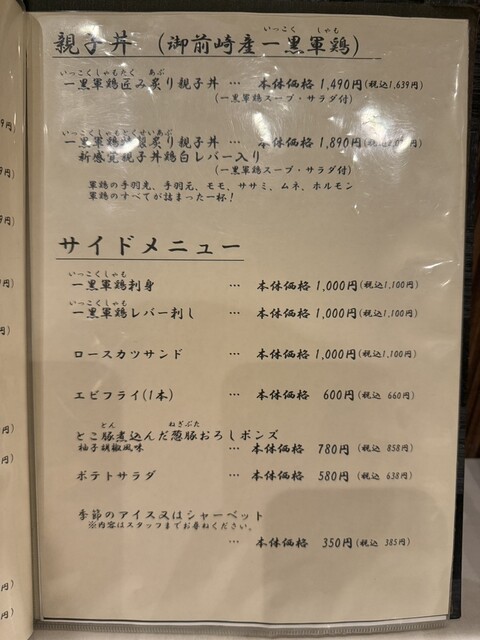 親子丼 (御前崎産一黒軍鶏)
いっこく しゃも
いっこくしゃもたく あぶ
一黒軍鶏匠み炙り親子丼 … 本体価格 1,490円(税込1,639円)
(一黒軍鶏スープ・サラダ付)
いっこくしゃもとくせいあぶ
一黒軍鶏 炙り親子丼 … 本体価格 1,890円(税込
新感覚親子丼鶏白レバー入り
(一黒軍鶏スープ・サラダ付)
軍鶏の手羽先、手羽元、モモ、ササミ、ムネ、ホルモン
軍鶏のすべてが詰まった一杯!
サイドメニュー
いっこくしゃも
一黒軍鶏刺身 … 本体価格 1,000円(税込1,100円)
いっこくしゃも
一黒軍鶏レバー刺し … 本体価格 1,000円(税込1,100円)
ロースカツサンド … 本体価格 1,000円(税込1,100円)
エビフライ(1本) … 本体価格 600円(税込 660円)
とん ねぎぶた
とこ豚煮込んだ葱豚おろしポンズ
柚子胡椒風味 … 本体価格 780円(税込 858円)
ポテトサラダ … 本体価格 580円(税込 638円)
季節のアイス又はシャーベット
※内容はスタッフまでお尋ねください。
… 本体価格 350円(税込 385円)